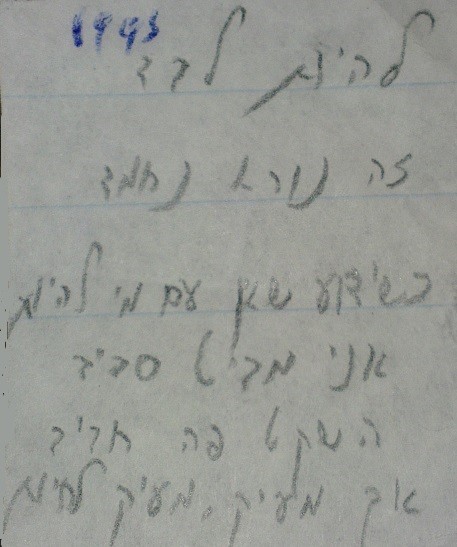 1993
להיות לבד
זה נורא נחמד
כשיודע שאין עם מי להיות
אני מביט סביב
השקט פה חביב
אך מעיק, מעיק לחיות